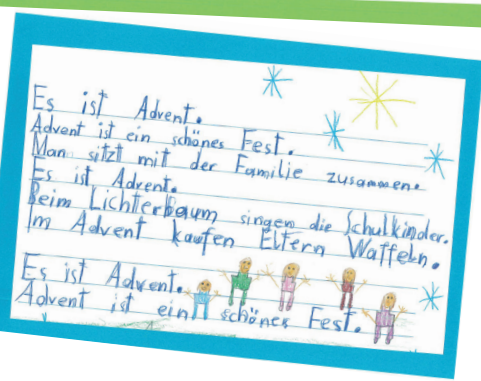 Es ist Advent.
Advent ist ein schönes Fest.
Man sitzt mit der Familie zusammen.
Es ist Advent.
Beim Lichterbaum singen die Schulkinder.
Im Advent kaufen Eltern Waffeln.
Es ist Advent.
Advent ist ein schönes Fest.